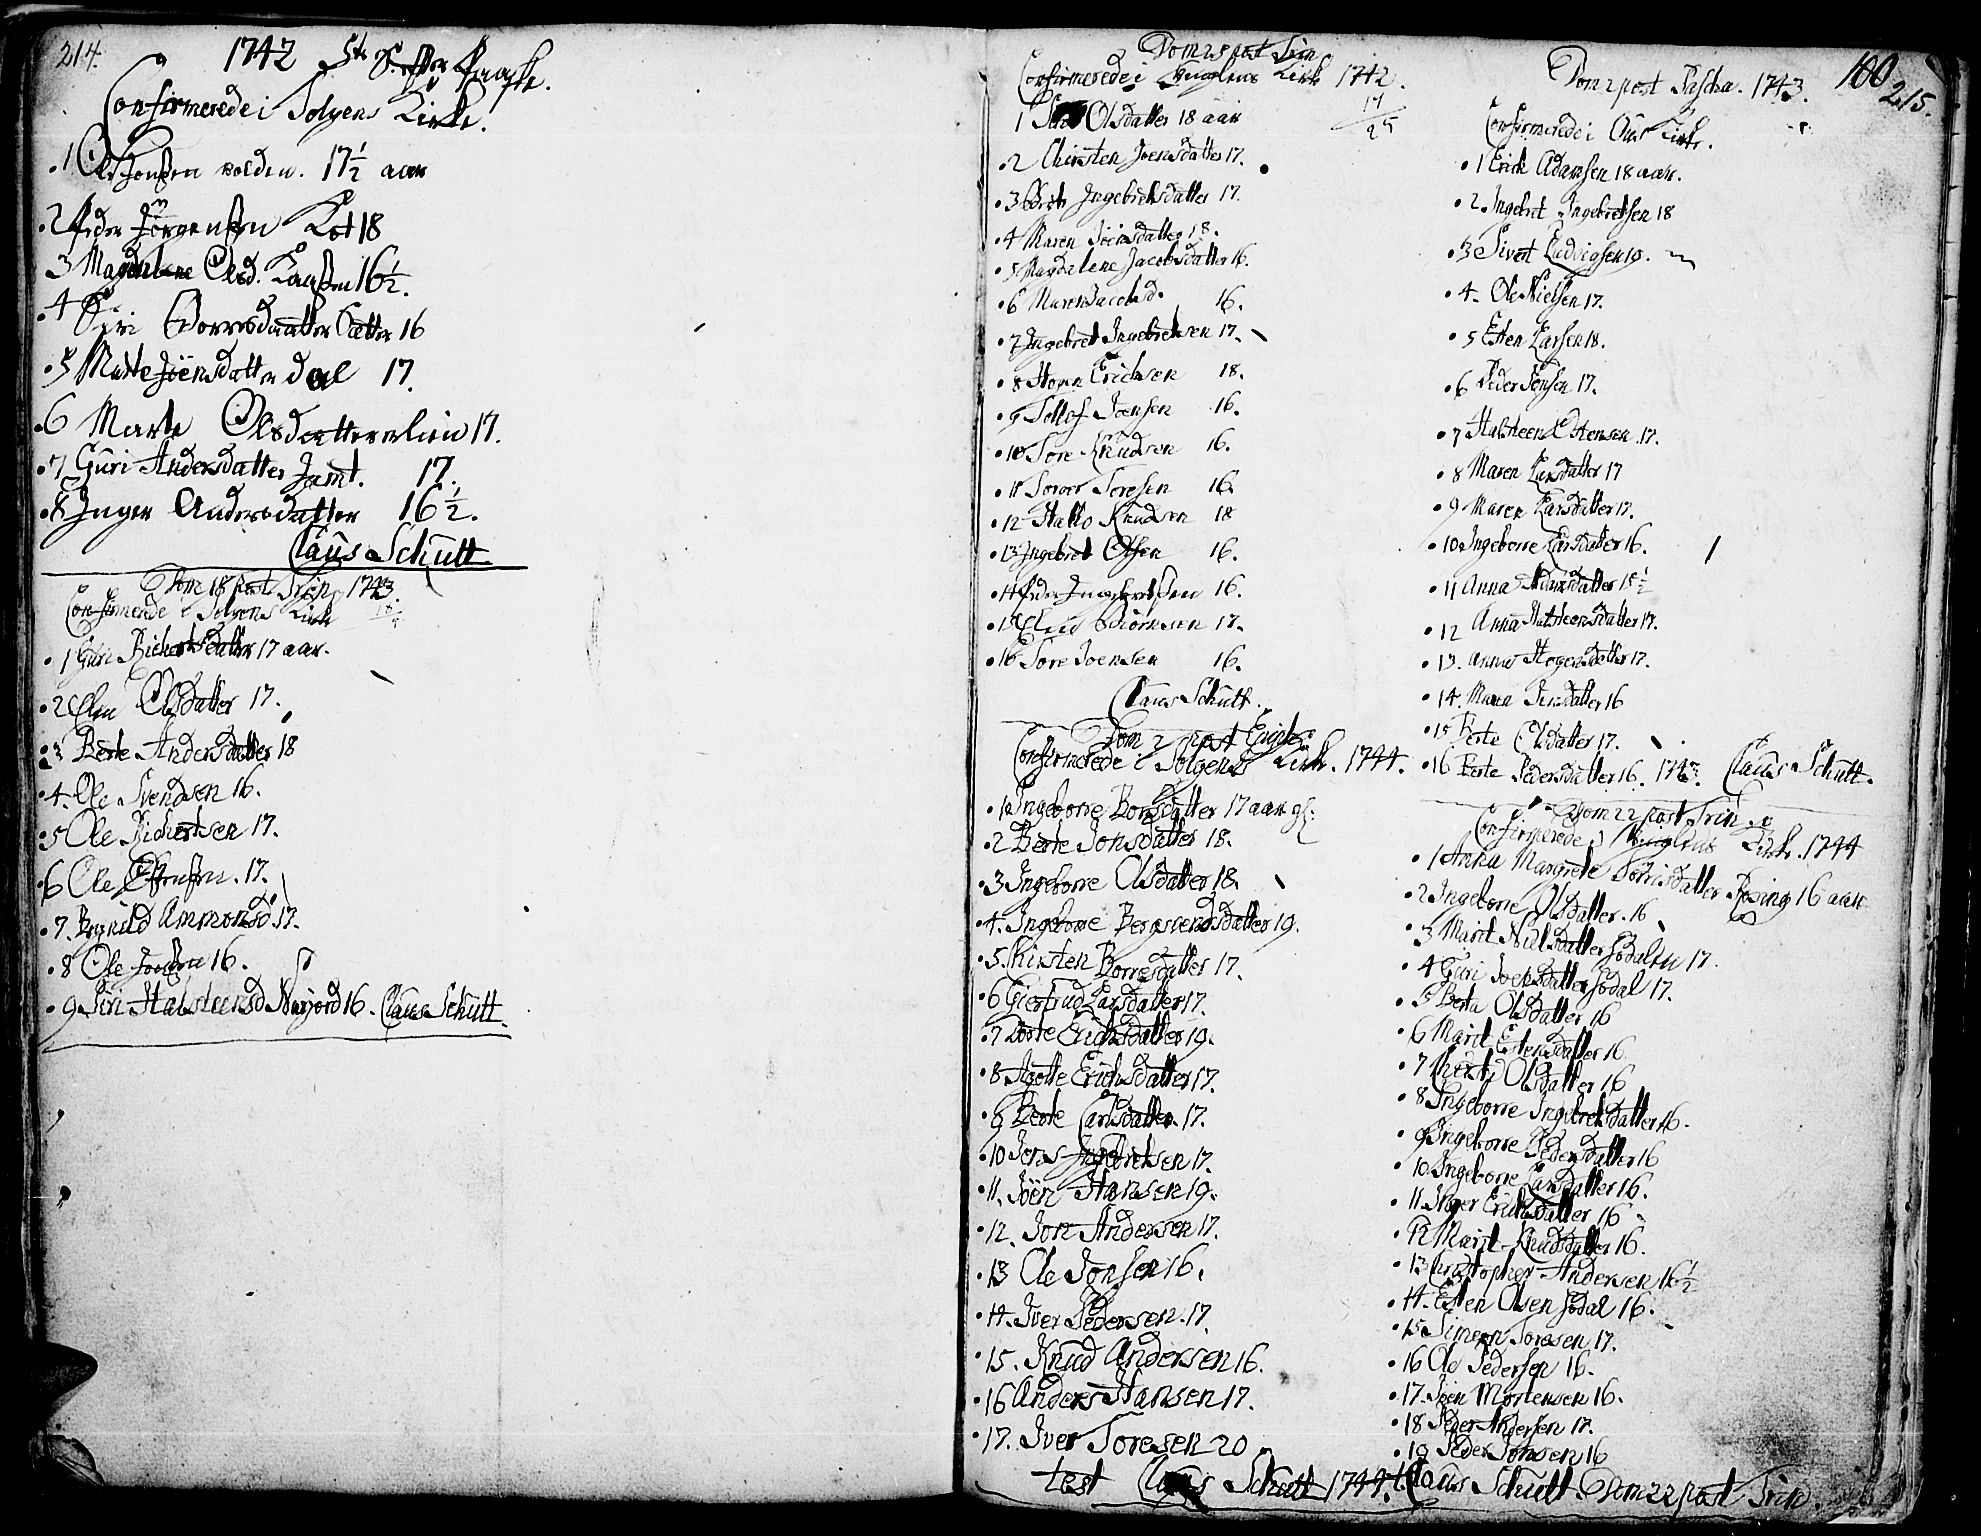 214.
1742 5te S. efter Paaske.
Confirmerede i Tolgens Kirke.
1 Ole Jonsen volden. 17½ aar
2 Peder Jörgensen Kot 18
3 Magdalene Olsd. Kaasen 16½.
4 Siri Borresdaatter Sætter 16
5 Marte Joensdatter dal 17.
6 Marte Olsdatter vlien 17.
7 Guri Andersdatter Jamt. 17.
8 Inger Andersdatter 16½.
Claus Schutt
Dom 18 post Trin 1743.
Confirmerede i Tolgens Kirke
1 Guri Richertsdatter 17 aar.
2 Elen Olsdatter 17.
3 Berte Andersdatter 18
4. Ole Svendsen 16.
5 Ole Richertsen 17.
6 Ole Estensen. 17.
7. Bergnild Ammonsd. 17.
8 Ole Jonsen 16.
9 Siri Halsteensd Narjord 16. Claus Schutt.
Dom 25 post Trin
Confirmerede i Kirke 1742.
17/25
1 Olsdatter 18 aar
2 Chirsten Joensdatter 17.
3 Berit Ingebretsdatter 17.
4 Maren Joensdatter 18.
5 Magdalene Jacobsdatter 16.
6 Maren Jacobsd. 16.
7 Ingebret Ingebretsen 17.
8 Erichsen 18.
9 Tollof Joensen 16.
10 Tore Knudsen 16.
11 Toresen 16.
12 Knudsen 18
13 Ingebret Olsen 16.
14 Peder Ingebretsen 16.
15 Biörnsen 17.
16 Tore Joensen 16.
Claus Schutt.
Dom 2 post Epiph.
Confirmerede i Tolgens Kirke. 1744.
1 Ingeborre Borresdatter 17 aar gl.
2 Berte Jonsdatter 18.
3 Ingeborre Olsdatter 18.
4. Ingeborre Bergsvendsdatter 19.
5. Kirsten Borresdatter 17.
6 Giertrud Larsdatter 17.
7 Dorte Erichsdatter 19.
8 Agotte Erichsdatter 17.
9 Berte Larsdatter. 17.
10 Jens Ingebretsen 17.
11. Joen Hansen 19.
12. Jon Andersen 17.
13 Ole Jonsen 16.
14. Iver Pedersen. 17.
15. Knud Andersen 16.
16 Anders Hansen 17.
17. Iver Toresen 20
test Claus Schutt 1744.
100
215.
Dom 2 post Pascha. 1743.
Confirmerede i Aaus Kirke.
1 Erick Adamsen 18 aar.
2. Ingebret Ingebretsen 18
3 Sivert Ludvigsen 19.
4. Ole Nielsen 17.
5 Esten Larsen 18.
6 Peder Jonsen 17.
7 Halsteen Estensen. 17.
8 Maren Larsdatter 17
9 Maren Larsdatter 17.
10 Ingeborre Larsdatter 16.
11 Anna Adamsdatter 15½
12 Anna Halsteensdatter 17.
13. Anne Hogensdatter 17.
14. Maria Jensdatter 16
15 Berte Olsdatter 17.
16 Berte Pedersdatter 16. 1743. Claus Schutt.
Dom 22 post Trin
Confirmerede i Kirke. 1744
1 Anna Margrete Dorrisdatter Rosing 16 aar
2 Ingeborre Olsdatter. 16
3 Marit Nielsdatter Sodalen 17.
4 Guri Joensdatter Sodal 17.
5 Berta Olsdatter 16
6 Marit Estensdatter 16.
7 Kirsti Olsdatter 16
8 Ingeborre Ingebretsdatter 16.
9 Ingeborre Pedersdatter 16
10 Ingeborre Larsdatter 16.
11 Inger Erichsdatter 16
12 Marit Knudsdatter 16.
13 Christopher Andersen 16½
14. Esten Olsen Sodal 16.
15 Simen Toresen 17.
16 Ole Pedersen 16.
17. Joen Mortensen 16.
18 Peder Andersen 17.
19 Peder Jonsen 16
Claus Schutt Dom 22 post Trin.